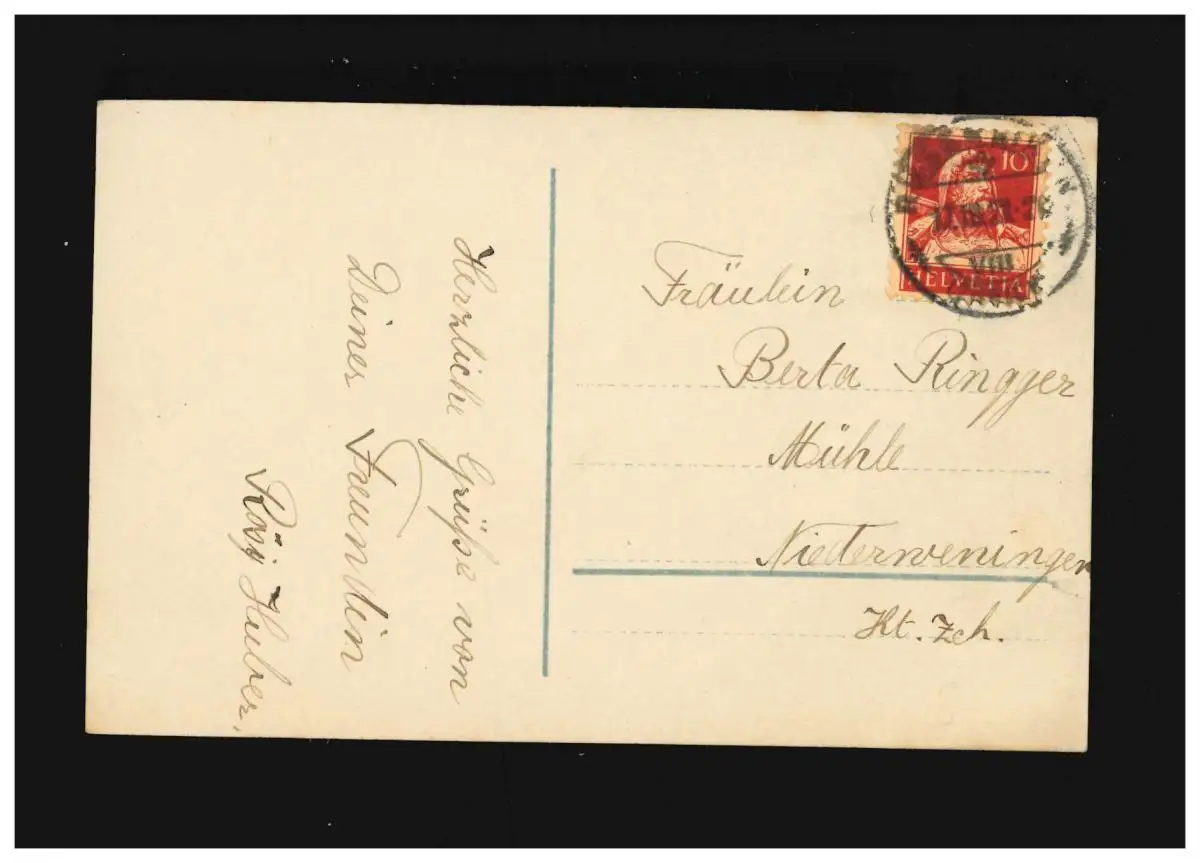 Herzliche Grüße von
Deiner Freundin
Rösy Huber,
10
HELVETIA
Fräulein
Berta Ringger
Mühle
Niederweningen
Kt. Zch.